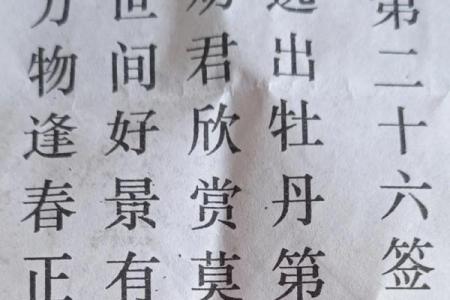 第二十六签
出牡丹第
君欣赏莫
世间好景有
万物逢春正